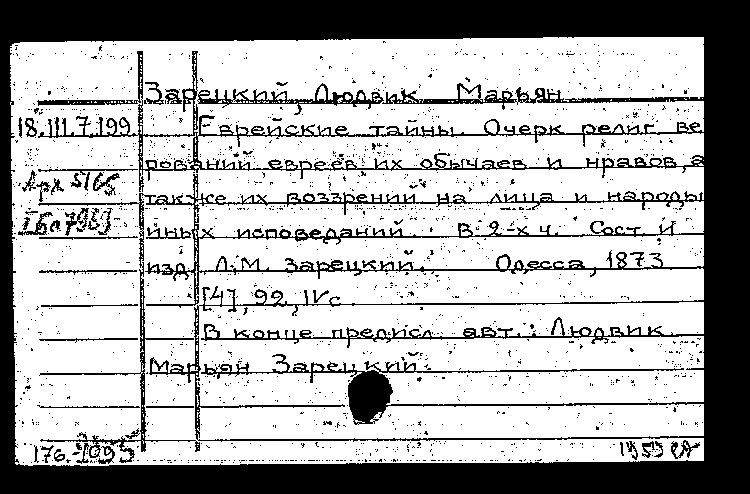 Зарецкий, Людвик Марьян
18.III.7.199
Еврейские тайны. Очерк религ. ве
рований евреев, их обычаев и нравов, а
также их воззрений на лица и народы
Арх 5165
иных исповеданий. В 2-х ч. Сост. и
изд. Л.М. Зарецкий. Одесса, 1873
[4], 92, IV с.
В конце предисл. авт.: Людвик
Марьян Зарецкий.
176.